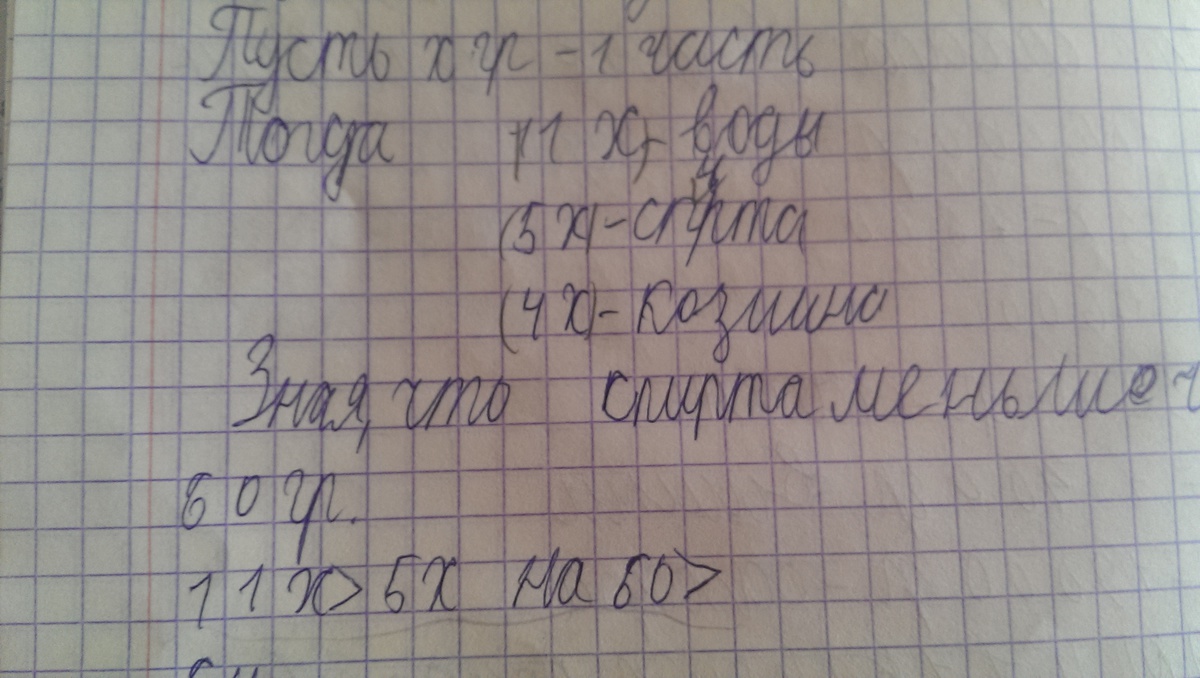 Пусть х гр - 1 часть
Тогда 11 х - воды
(5 х) - спирта
(4 х) - казеина
Зная, что спирта меньше
60 гр.
11 х > 5 х на 60 >